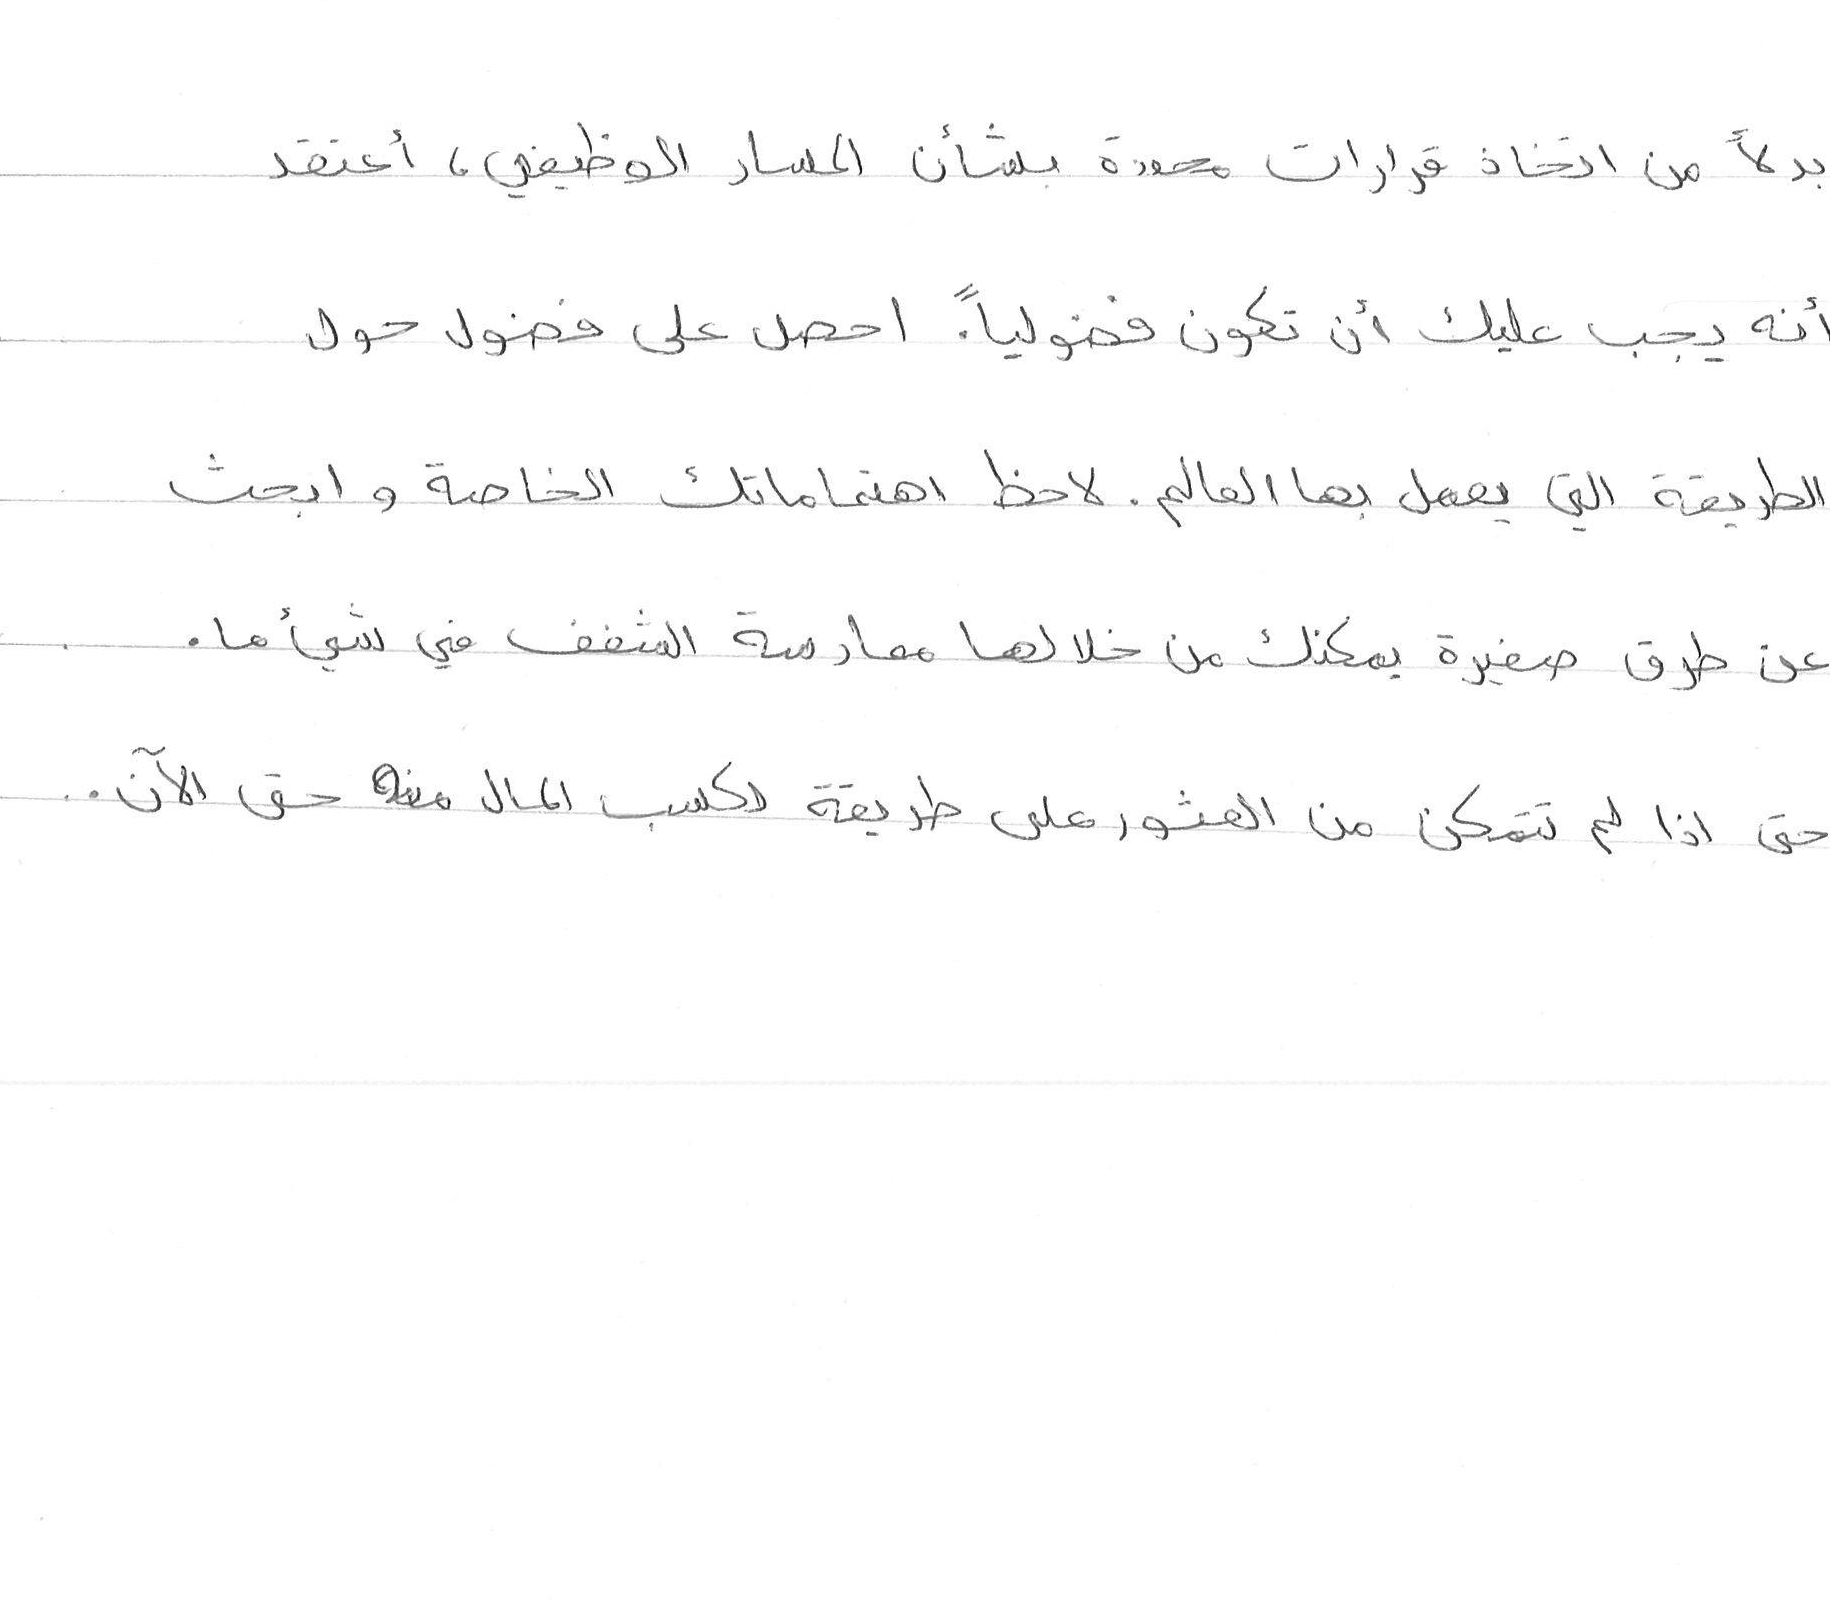 بدلاً من اتخاذ قرارات محددة بشأن المسار الوظيفي، أعتقد
أنه يجب عليك أن تكون فضولياً. احصل على فضول حول
الطريقة التي يعمل بها العالم. لاحظ اهتماماتك الخاصة و ابحث
عن طرق صغيرة يمكنك من خلالها ممارسة الشغف في شيئ ما.
حتى اذا لم تتمكن من العثور على طريقة لكسب المال منه حتى الآن..